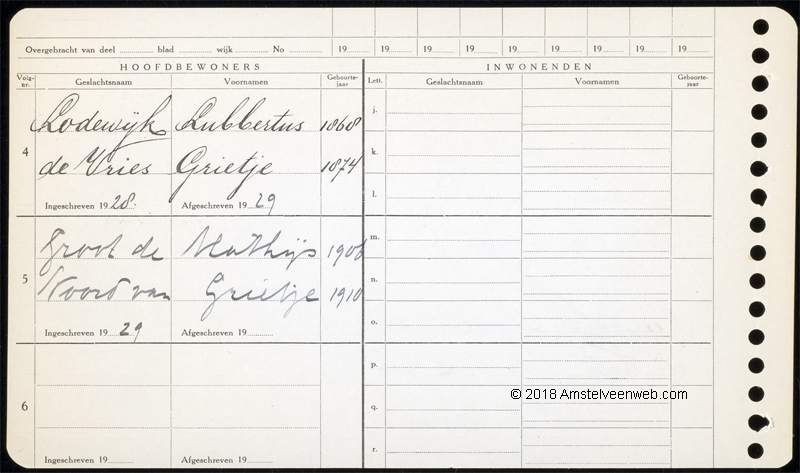 Overgebracht van deel ............ blad ......... wijk ......... No ............ 19 19 19 19 19 19 19 19
HOOFDBEWONERS INWONENDEN
Volg-nr. Geslachtsnaam Voornamen Geboorte-jaar Lett. Geslachtsnaam Voornamen Geboorte-jaar
Lodewijk Lubbertus 1868 j.
4 de Vries Grietje 1874 k.
l.
Ingeschreven 1928. Afgeschreven 1929
Groot de Mathijs 1906 m.
5 Noord van Grietje 1910 n.
o.
Ingeschreven 1929 Afgeschreven 19
p.
6 q.
r.
Ingeschreven 19 Afgeschreven 19
© 2018 Amstelveenweb.com